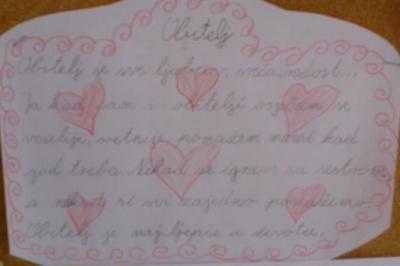 Obitelj
Obitelj je sva ljubav, sreća, radost...
Ja kad sam s obitelji osjećam se
veselije, sretnije, pomažem mami kad
god treba. Nekad se igram sa sestrom
a nekad si svi zajedno pomažemo.
Obitelj je najljepše u životu.